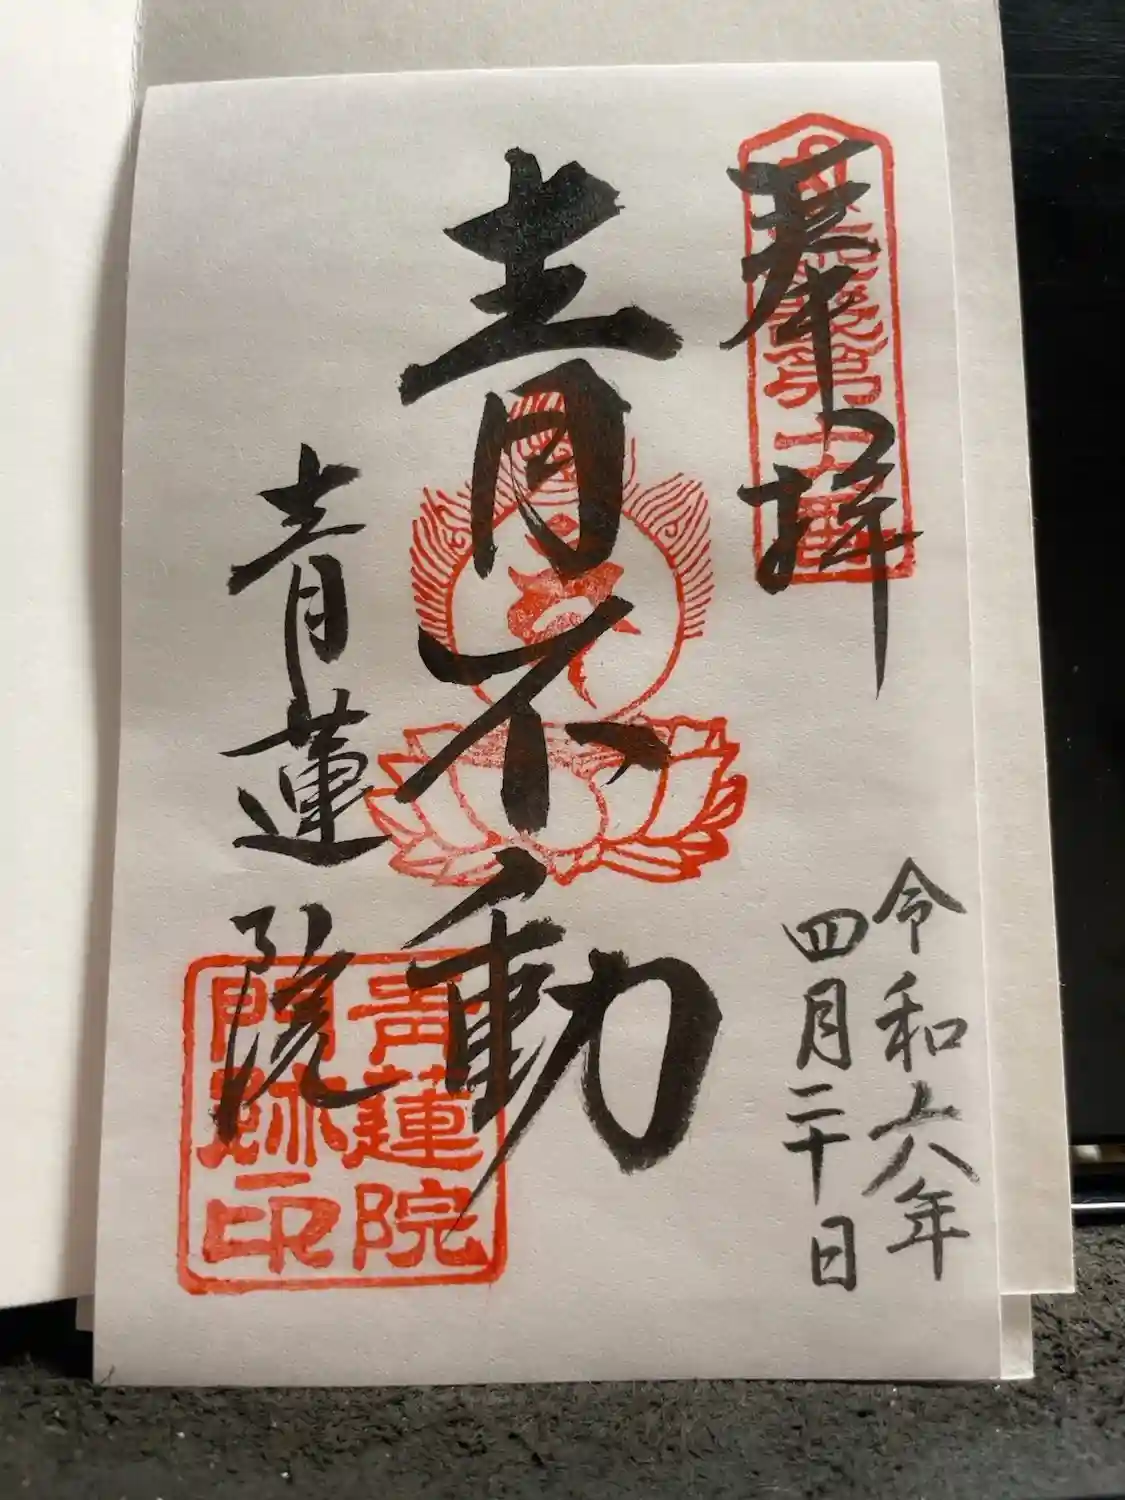 奉拝
令和六年
四月二十日
青不動
青蓮院
青蓮院
門跡印